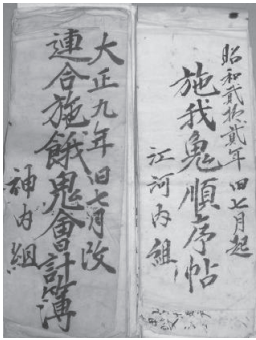 昭和貳拾貳年 旧七月起
施我鬼順序帖
江河内組
大正九年旧七月改
連合施餓鬼會計簿
神内組